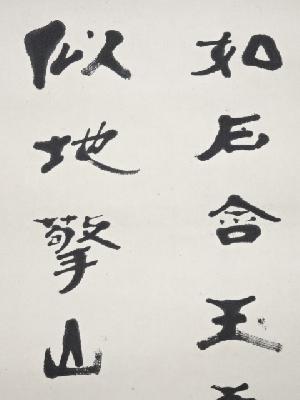 如石含玉
似地擎山